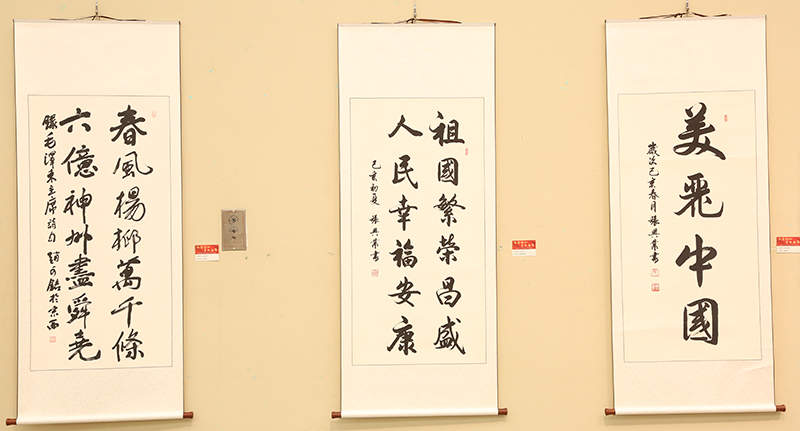 春風楊柳萬千條
六億神州盡舜堯
錄毛澤東主席詩句
祖國繁榮昌盛
人民幸福安康
己亥初夏 張興業書
美麗中國
歲次己亥春月張興業書